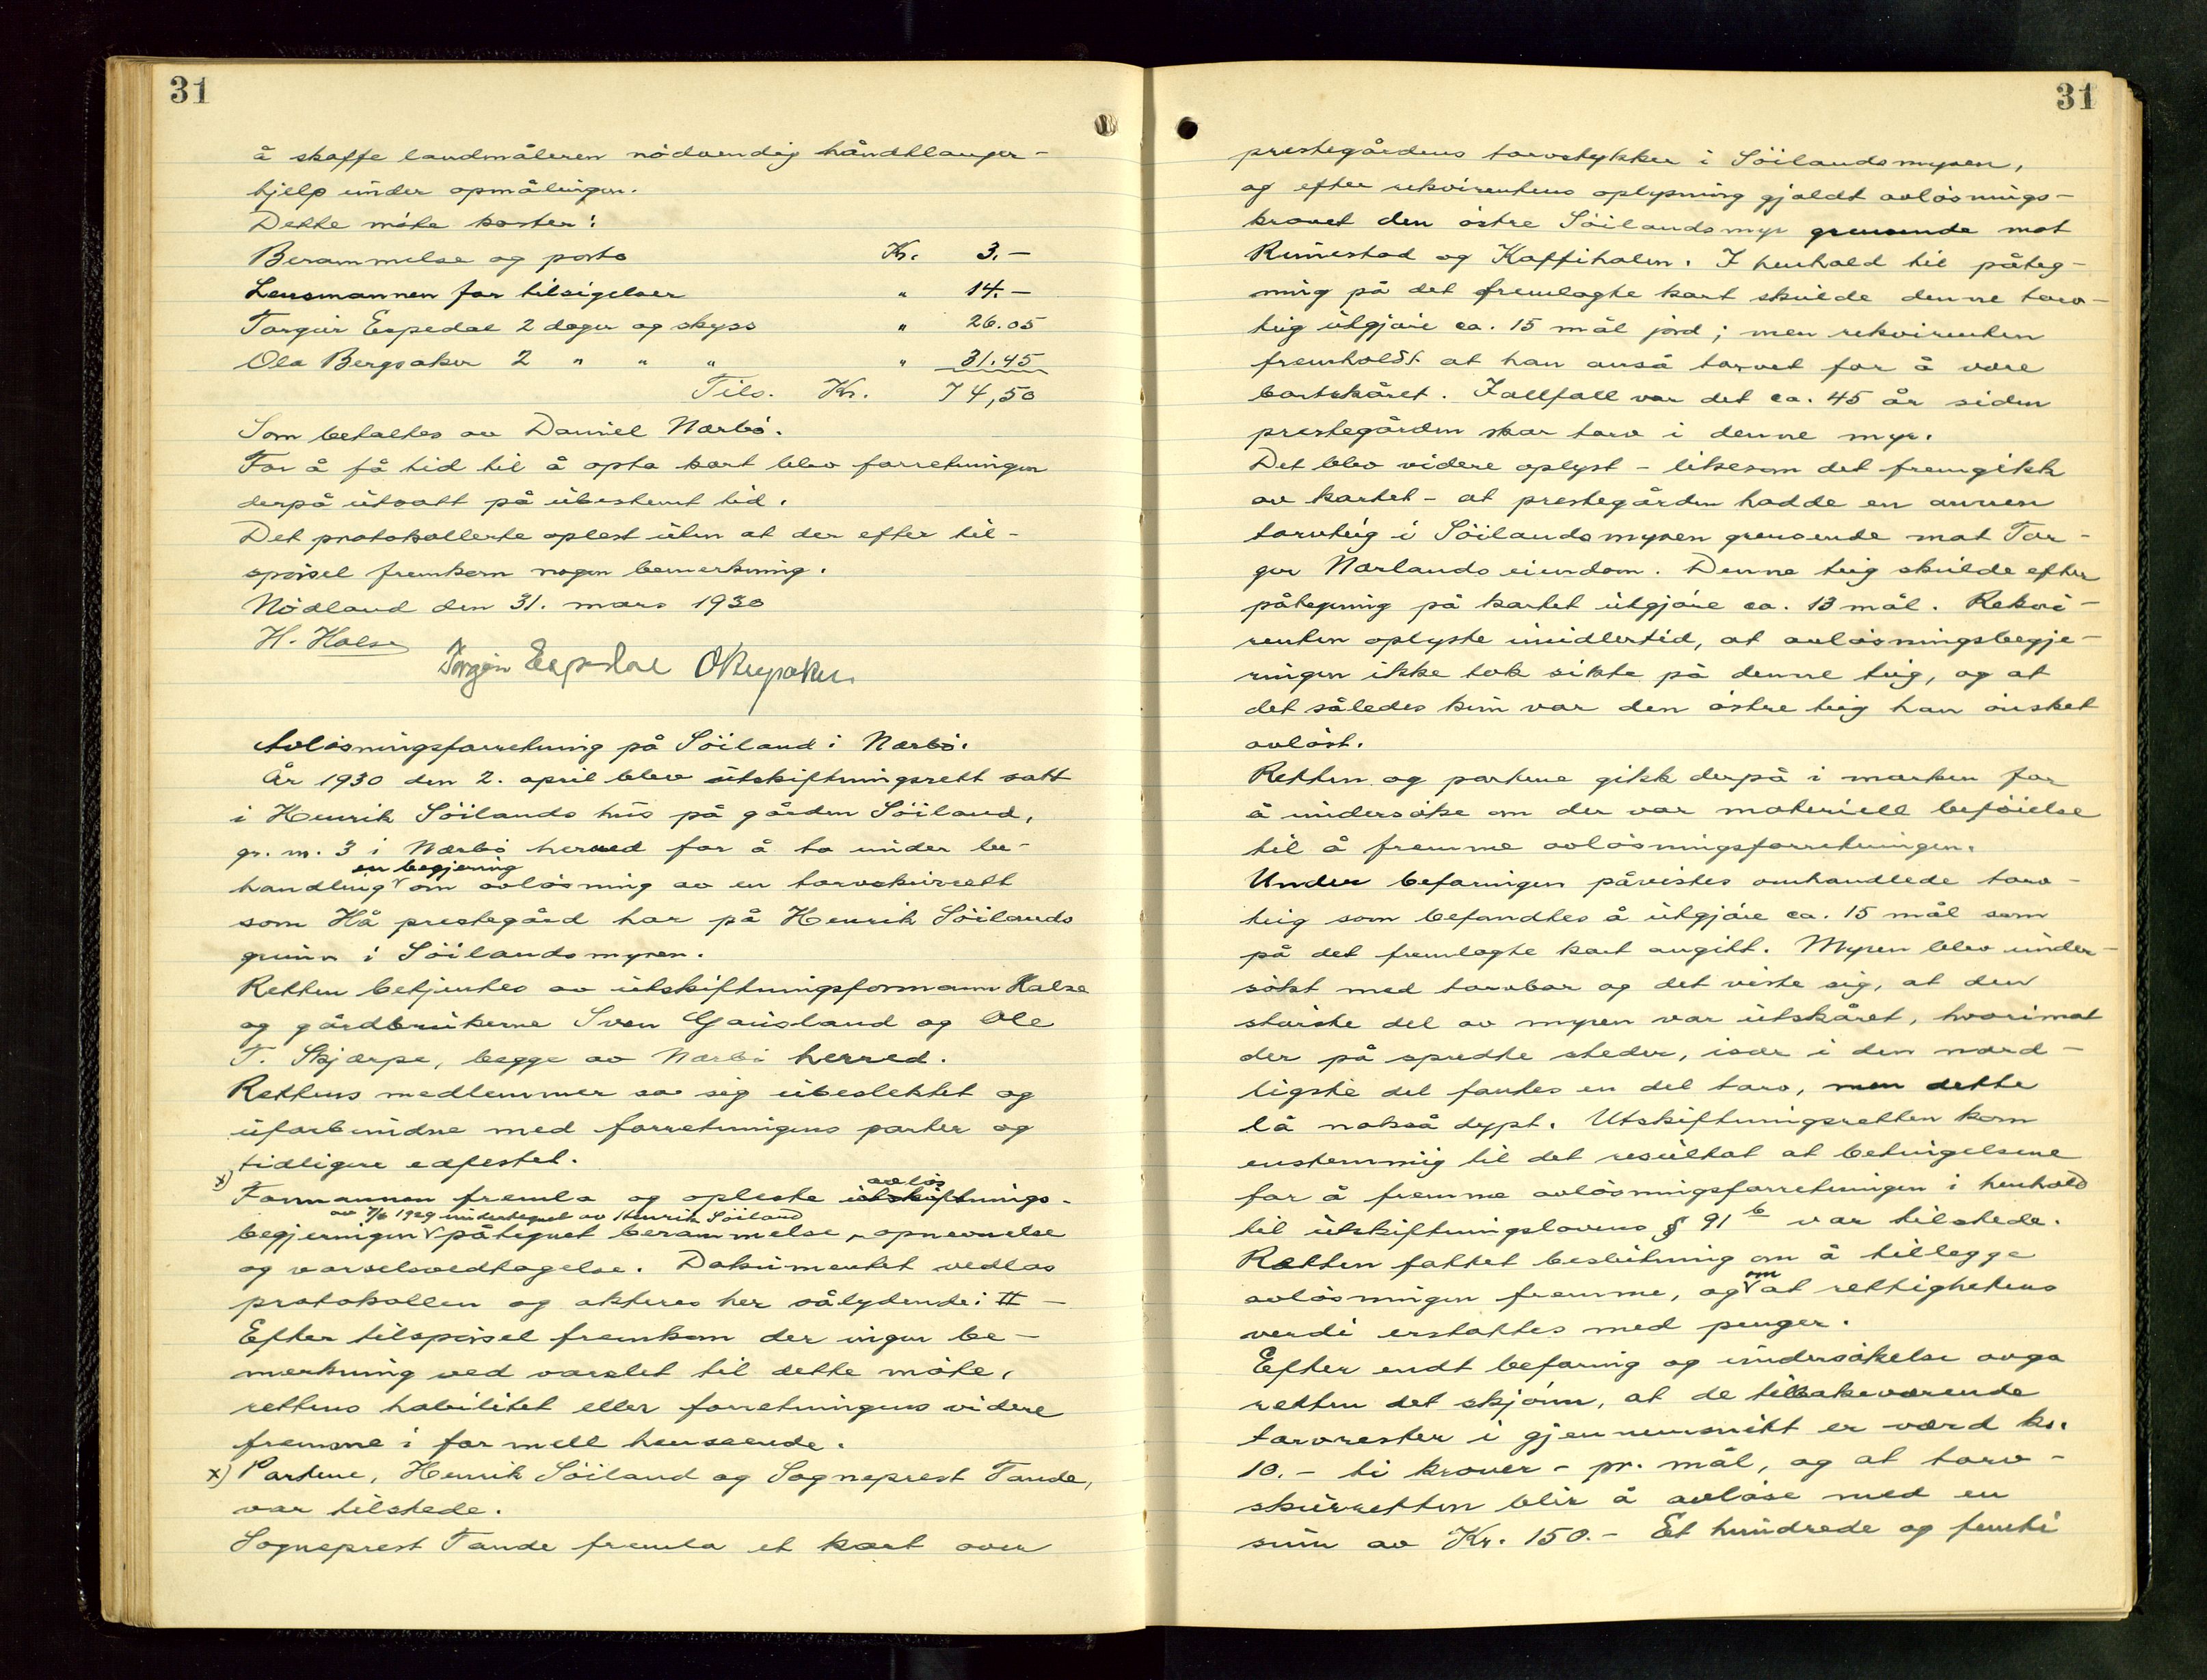 31
å skaffe landmåleren nödvendig håndtlanger-
hjelp under opmålingen.
Dette möte koster:
Berammelse og porto Kr. 3.—
Lensmannen for tilsigelser " 14.—
Torger Espedal 2 dager og skyss " 26.05
Ola Bergsaker 2 " " " " 31.45
Tils. Kr. 74,50
Som betaltes av Daniel Nærbö.
For å få tid til å opta kart blev forretningen
derpå utsatt på ubestemt tid.
Det protokollerte oplest uten at der efter til-
spörsel fremkom nogen bemerkning.
Nödland den 31. mars 1930
H. Halse
Torger Espedal OBergsaker
Avlösningsforretning på Söiland i Nærbö.
År 1930 den 2. april blev utskiftningsrett satt
i Henrik Söilands hus på gården Söiland,
gr. nr. 3 i Nærbö herred for å ta under be-
en begjæring
handling om avlösning av en torvskurrett
som Hå prestegård har på Henrik Söilands
grunn i Söilandsmyren.
Retten betjentes av utskiftningsformann Halse
og gårdbrukerne Sven Gausland og Ole
T. Skjærpe, begge av Nærbö herred.
Rettens medlemmer sa sig ubeslektet og
uforbundne med forretningens parter og
tidligere edfestet.
x)
avlös
Formannen fremla og opleste utskiftnings-
av 7/6 1929 undertegnet av Henrik Söiland
begjeringen påtegnet berammelse, opnevnelse
og varselsvedtagelse. Dokumentet vedlas
protokollen og akteres her sålydende: II —
Efter tilspörsel fremkom der ingen be-
merkning ved varslet til dette möte,
rettens habilitet eller forretningens videre
fremme i formell henseende.
x) Partene, Henrik Söiland og Sogneprest Tande,
var tilstede.
Sogneprest Tande fremla et kart over
31
prestegårdens torvstykker i Söilandsmyren,
og efter rekvirentens oplysning gjaldt avlösnings-
kravet den östre Söilandsmyr grensende mot
Runestad og Kaffihalen. I henhold til påteg-
ning på det fremlagte kart skulde denne torv-
teig utgjöre ca. 15 mål jord; men rekvirenten
fremholdt at han anså torvet for å være
bortskåret. Iallfall var det ca. 45 år siden
prestegården skar torv i denne myr.
Det blev videre oplyst - likesom det fremgikk
av kartet - at prestegården hadde en annen
torvteig i Söilandsmyren grensende mot Tor-
ger Norlands eiendom. Denne teig skulde efter
påtegning på kartet utgjöre ca. 13 mål. Rekvi-
renten oplyste imidlertid, at avlösningsbegje-
ringen ikke tok sikte på denne teig, og at
det således kun var den östre teig han önsket
avlöst.
Retten og partene gikk derpå i marken for
å undersöke om der var materiell beföielse
til å fremme avlösningsforretningen.
Under befaringen påvistes omhandlede torv-
teig som befandtes å utgjöre ca. 15 mål som
på det fremlagte kart angitt. Myren blev under-
sökt med torvbor og det viste sig, at den
störste del av myren var utskåret, hvorimot
der på spredte steder, især i den nord-
ligste del fantes en del torv, men dette
lå nokså dypt. Utskiftningsretten kom
enstemmig til det resultat at betingelsene
for å fremme avlösningsforretningen i henhold
til utskiftningslovens § 91 b var tilstede.
Retten fattet beslutning om å tillegge
om
avlösningen fremme, og at rettighetens
verdi erstattes med penger.
Efter endt befaring og undersökelse avga
retten det skjönn, at de tilbakeværende
torvrester i gjennemsnitt er værd kr.
10.- ti kroner - pr. mål, og at torv-
skurretten blir å avlöse med en
sum av Kr. 150.- Et hundrede og femti